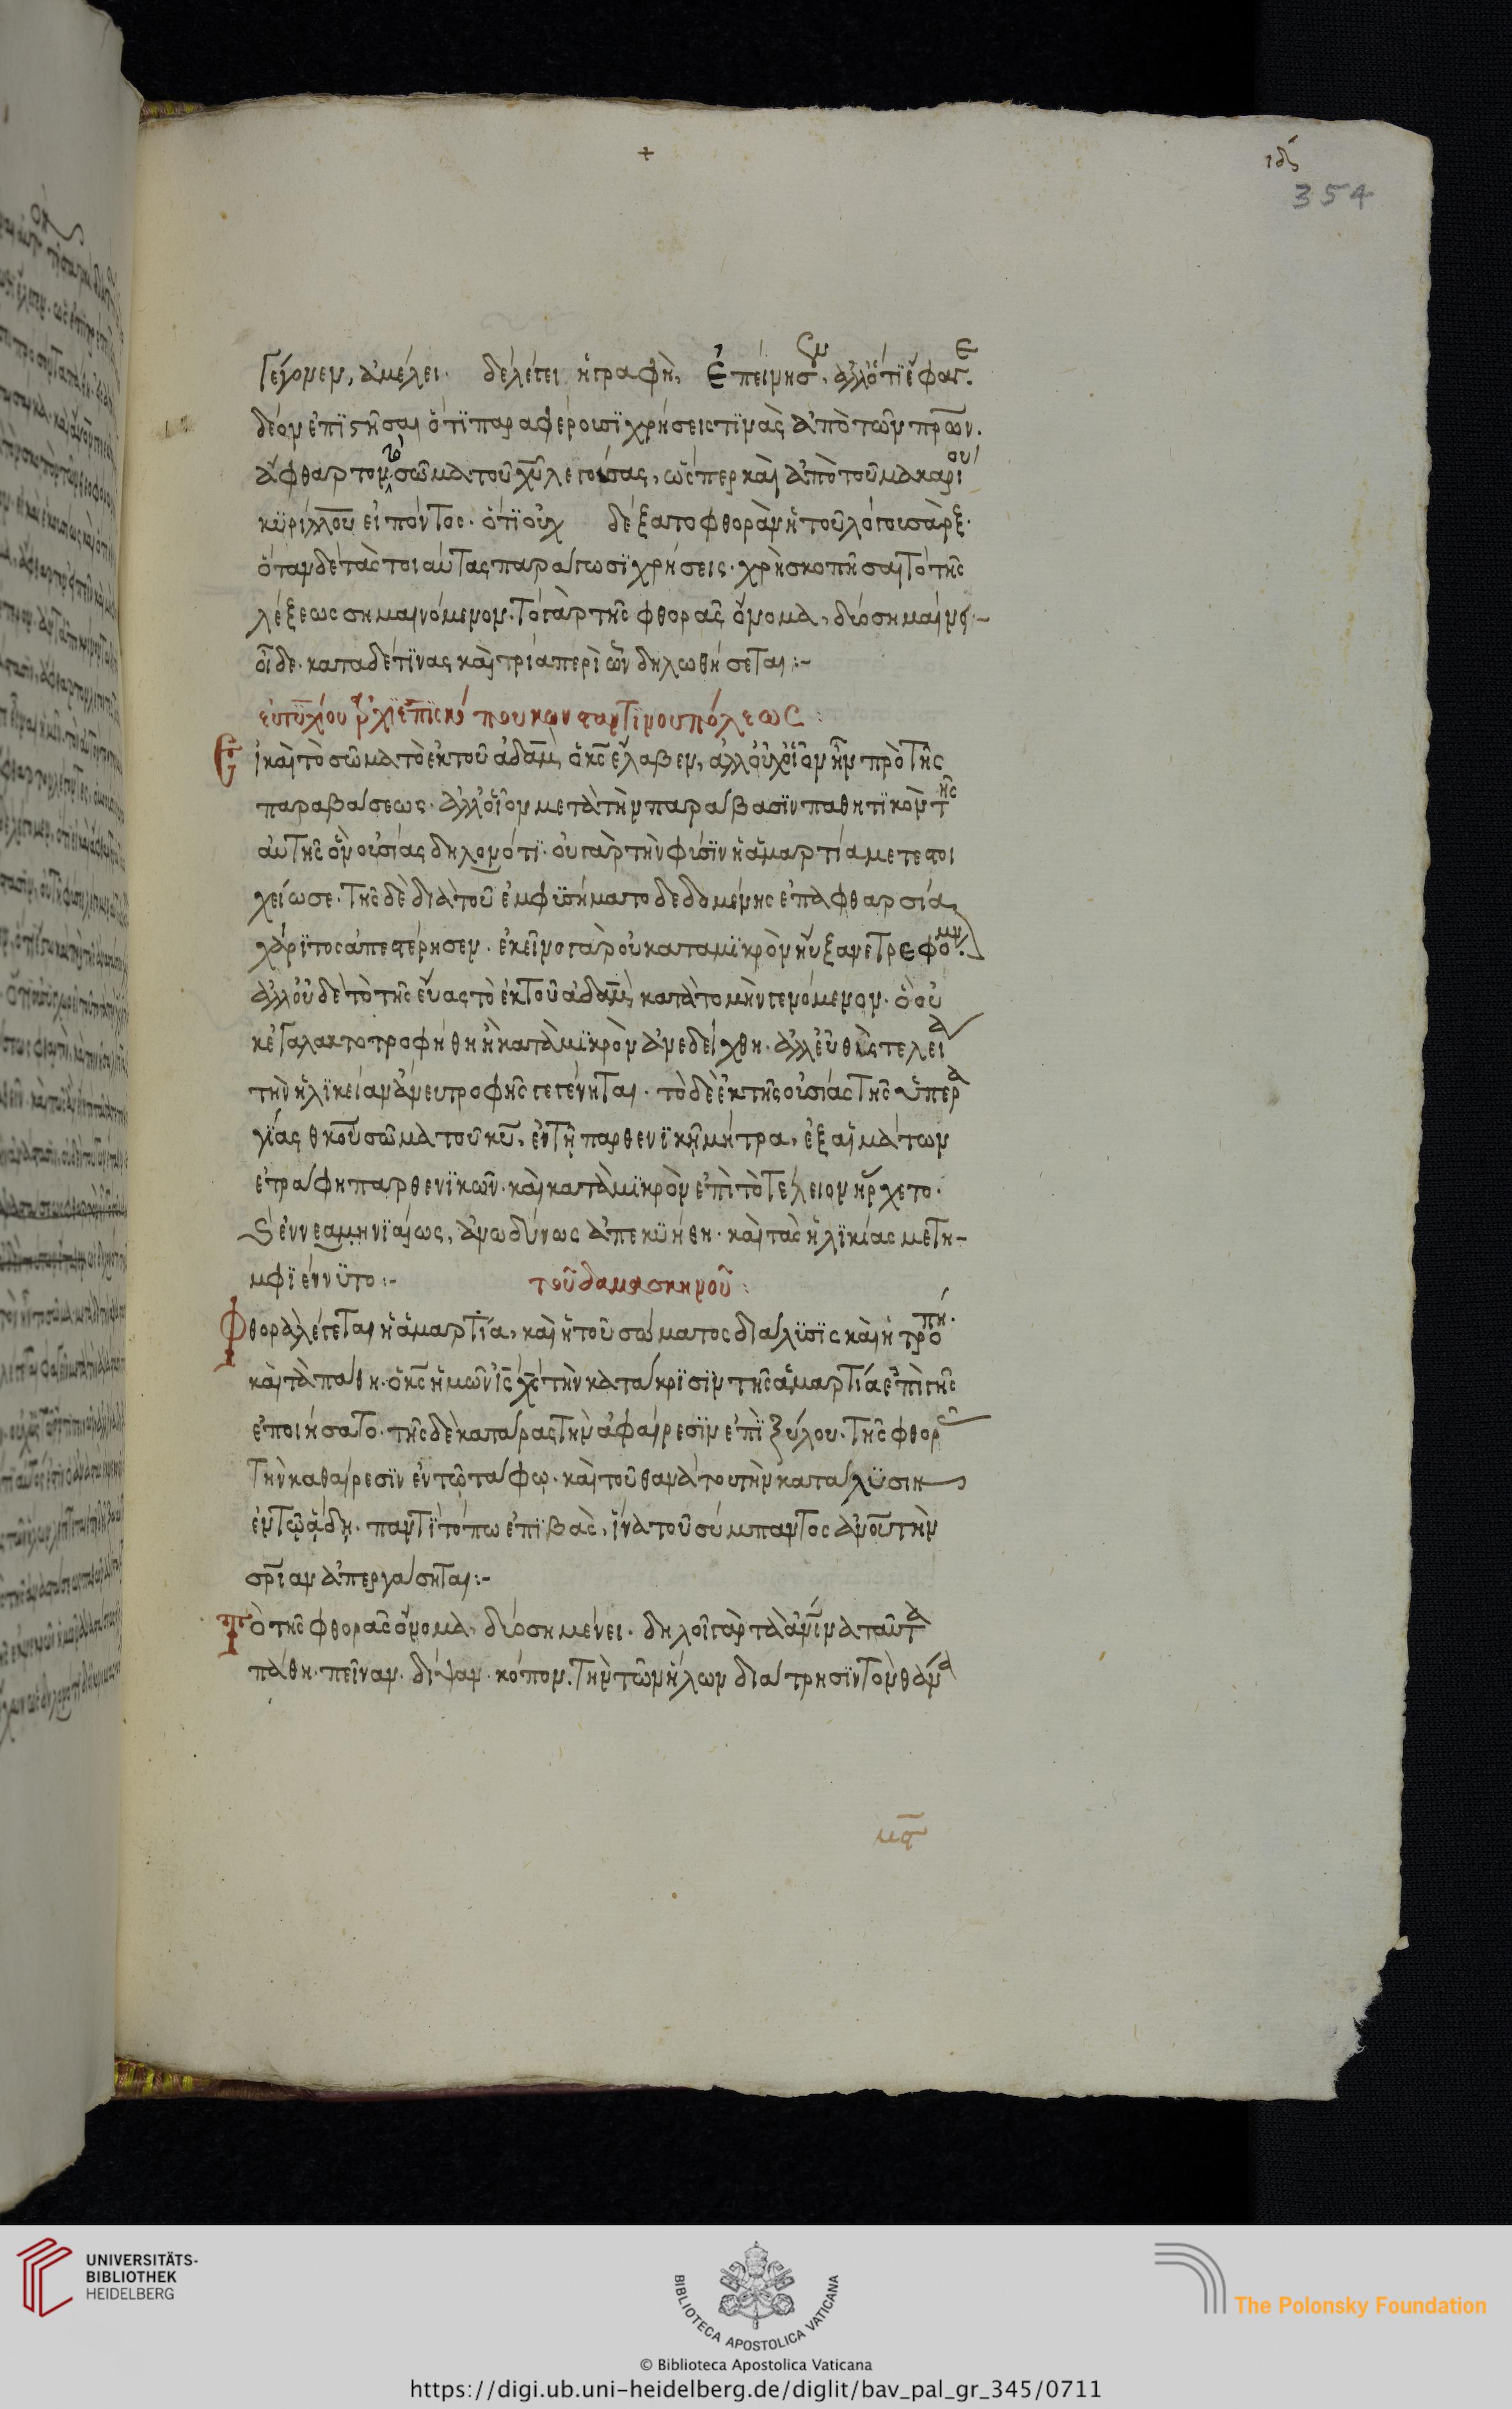 +
ιδ΄
354
γέγονεν, ἀμέλει. δὲ λέγει ἡ γραφὴ, ἐπείνησεν, ἀλλ' ὅτι ἔφαγε.
δέον ἐπιστῆσαι ὅτι παραφέρουσι χρήσεις τινὰς ἀπὸ τῶν πρων.
ἄφθαρτον τὸ σῶμα τοῦ χυ λεγούσας, ὥσπερ καὶ ἀπὸ τοῦ μακαρίου
κυρίλλου εἰπόντος. ὅτι οὐκ ἐδέξατο φθορὰν ἡ τοῦ λόγου σάρξ.
ὅταν δὲ τὰς τοιαύτας παράγωσι χρήσεις. χρὴ σκοπῆσαι τὸ τῆς
λέξεως σημαινόμενον. τὸ γὰρ τῆς φθορᾶς ὄνομα, δύο σημαίνει.
οἶδε. κατα δέ τινας καὶ τρία περὶ ὧν δηλωθήσεται:-
εὐτυχίου ἀρχιεπισκόπου κωνσταντινουπόλεως:
Εἰ καὶ τὸ σῶμα τὸ ἐκ τοῦ ἀδαμ, ὁ κς ἔλαβεν, ἀλλ' οὐχ οἷον ἦν πρὸ τῆς
παραβάσεως. ἀλλ' οἷον μετὰ τὴν παράβασιν παθητικὸν τῆς
αὐτῆς ὂν οὐσίας δηλονότι. οὐ γὰρ τὴν φύσιν ἡ ἁμαρτία μετεστοι
χείωσε. τῆς δὲ διὰ τοῦ ἐμφυσήματο δεδομένης ἐπ' ἀφθαρσία
χάριτος ἀπεστέρησεν. ἐκεῖνο γὰρ οὐ κατα μικρὸν ηὔξανε τρεφόμεν.
ἀλλ' οὐδὲ τὸ τῆς εὔας τὸ ἐκ τοῦ ἀδαμ, κατὰ το μὴν γενόμενον. ὃ οὐ
κέ γαλακτοτροφήθη ἢ κατὰ μικρὸν ἀνεδείχθη. ἀλλ' εὐθὺς τελεία
τὴν ἡλικείαν ἄνευ τροφῆς γεγένηται. τὸ δὲ ἐκ τῆς οὐσίας τῆς ὑπερα
γίας θκου σῶμα τοῦ κυ, ἐν τῇ παρθενικῇ μήτρα, ἐξ αἱμάτων
ἐτράφη παρθενικῶν. καὶ κατὰ μικρὸν ἐπὶ τὸ τέλειον ἤρχετο.
καὶ ἐννεαμηνιαίως, ἀνωδύνως ἀπεκυήθη. καὶ τὰς ἡλικίας μετη-
μφιέννυτο:- τοῦ δαμασκηνοῦ:
Φθορὰ λέγεται ἡ ἁμαρτία, καὶ ἡ τοῦ σώματος διάλυσις καὶ ἡ τροπή.
καὶ τὰ πάθη. ὁ κς ἡμῶν ις χς τὴν κατάκρισιν τῆς ἁμαρτίας ἐπὶ γῆς
ἐποιήσατο. τῆς δὲ κατάρας τὴν ἀφαίρεσιν ἐπὶ ξύλου. τῆς φθορᾶς
τὴν καθαίρεσιν ἐν τῷ τάφῳ. καὶ τοῦ θανάτου τὴν κατάλυσιν
ἐν τῷ ἅδῃ. παντὶ τόπω ἐπιβὰς, ἵνα τοῦ σύμπαντος ἀνου τὴν
σριαν ἀπεργάσηται:-
Τὸ τῆς φθορᾶς ὄνομα, δύο σημένει. δηλοῖ γὰρ τὰ ἀνινα ταῦτα
πάθη. πεῖναν. δίψαν. κόπον. τὴν τῶν ἥλων διάτρησιν τὸν θάνα
μς
UNIVERSITÄTS-
BIBLIOTHEK
HEIDELBERG
BIBLIOTECA APOSTOLICA VATICANA
The Polonsky Foundation
© Biblioteca Apostolica Vaticana
https://digi.ub.uni-heidelberg.de/diglit/bav_pal_gr_345/0711